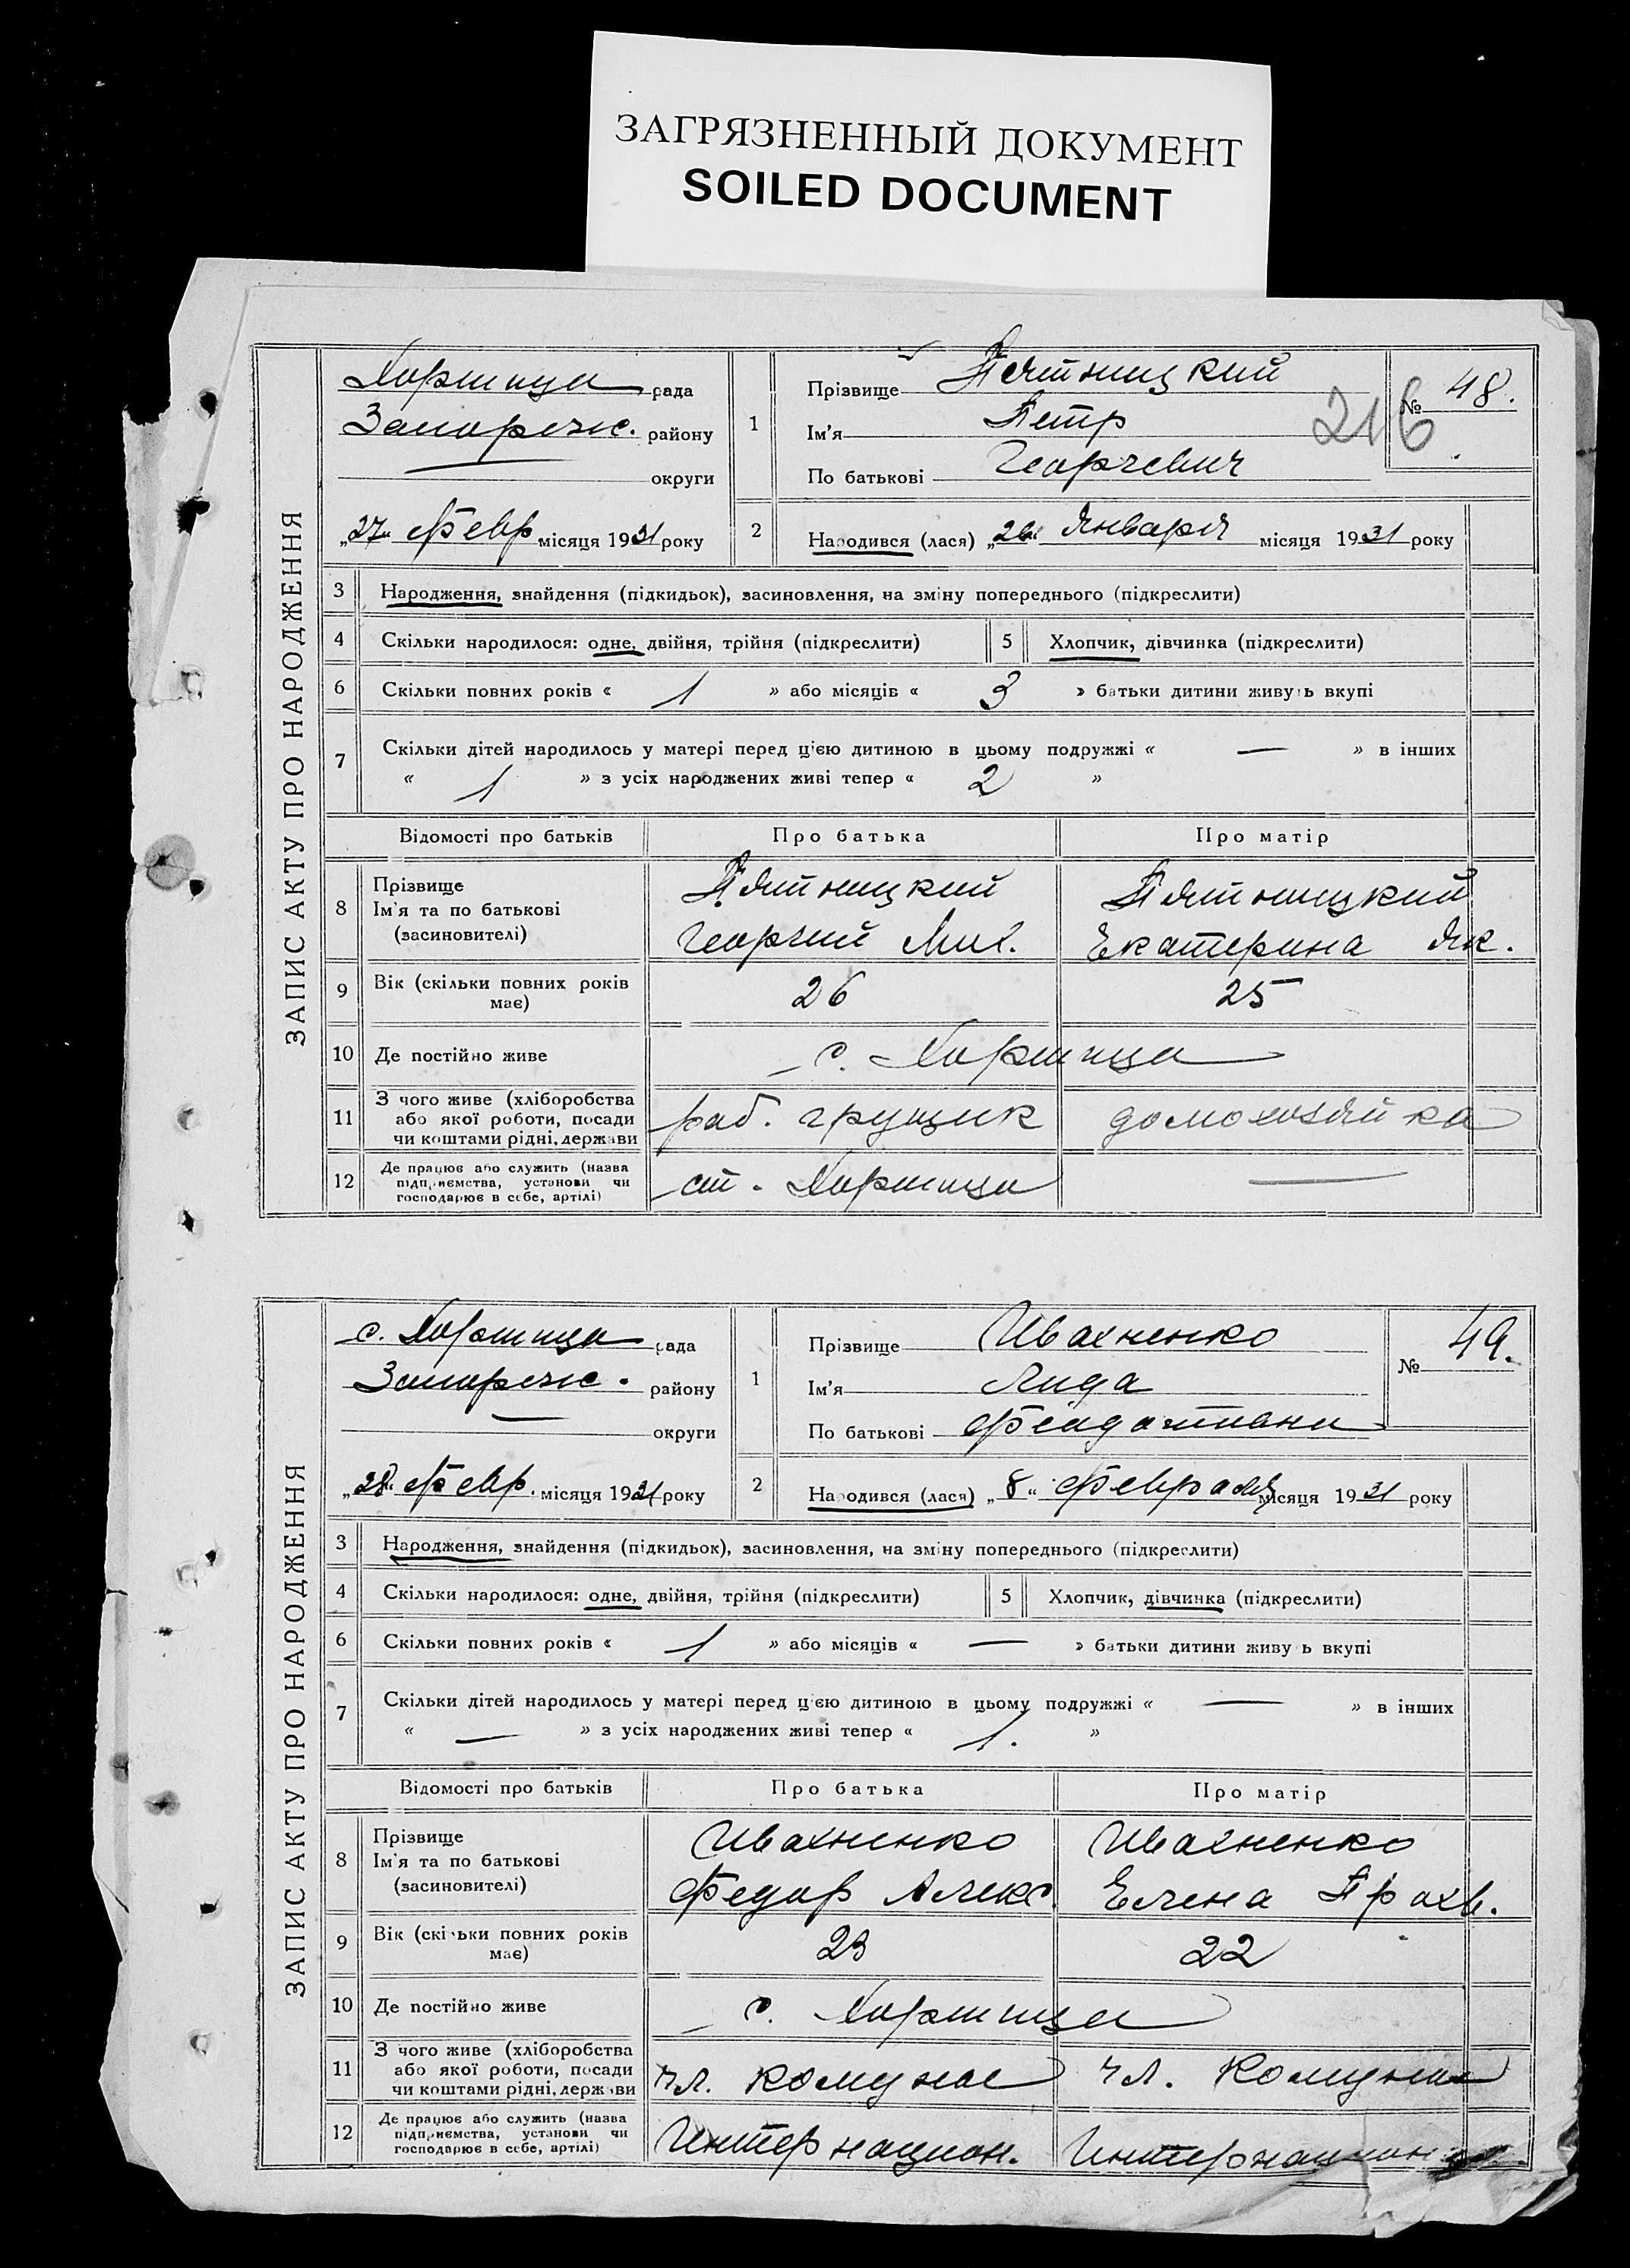 ЗАГРЯЗНЕННЫЙ ДОКУМЕНТ
SOILED DOCUMENT
ЗАПИС АКТУ ПРО НАРОДЖЕННЯ
Хортица рада
Запорожс. району
— округи
„27“ Февр місяця 1931 року
1 Прізвище Пятницкий
Ім'я Петр
По батькові Георгевич
№ 48.
216
2 Народився (лася) „26“ Января місяця 1931 року
3 Народження, знайдення (підкидьок), засиновлення, на зміну попереднього (підкреслити)
4 Скільки народилося: одне, двійня, трійня (підкреслити) 5 Хлопчик, дівчинка (підкреслити)
6 Скільки повних років « 1 » або місяців « 3 » батьки дитини живуть вкупі
7 Скільки дітей народилось у матері перед цією дитиною в цьому подружжі « — » в інших
« 1 » з усіх народжених живі тепер « 2 »
Відомості про батьків Про батька Про матір
8 Прізвище Ім'я та по батькові (засиновителі)
Пятницкий Пятницкий
Георгий Мих. Екатерина Як.
9 Вік (скільки повних років має) 26 25
10 Де постійно живе с. Хортица
11 З чого живе (хліборобства або якої роботи, посади чи коштами рідні, держави раб. грущик домохозяйка
12 Де працює або служить (назва підприємства, установи чи господарює в себе, артілі) ст. Хортица —
ЗАПИС АКТУ ПРО НАРОДЖЕННЯ
с. Хортица рада
Запорожс. району
— округи
„28“ Февр. місяця 1931 року
1 Прізвище Ивахненко
Ім'я Лида
По батькові
№ 49.
2 Народився (лася) „8“ Февраля місяця 1931 року
3 Народження, знайдення (підкидьок), засиновлення, на зміну попереднього (підкреслити)
4 Скільки народилося: одне, двійня, трійня (підкреслити) 5 Хлопчик, дівчинка (підкреслити)
6 Скільки повних років « 1 » або місяців « — » батьки дитини живу ь вкупі
7 Скільки дітей народилось у матері перед цією дитиною в цьому подружжі « — » в інших
« — » з усіх народжених живі тепер « 1. »
Відомості про батьків Про батька Про матір
8 Прізвище Ім'я та по батькові (засиновителі)
Ивахненко Ивахненко
Федор Алекс. Елена Прохв.
9 Вік (скільки повних років має) 23 22
10 Де постійно живе с. Хортица
11 З чого живе (хліборобства або якої роботи, посади чи коштами рідні, держави чл. комуны чл. Комуны
12 Де працює або служить (назва підприємства, установи чи господарює в себе, артілі) Интернацион. Интернацион